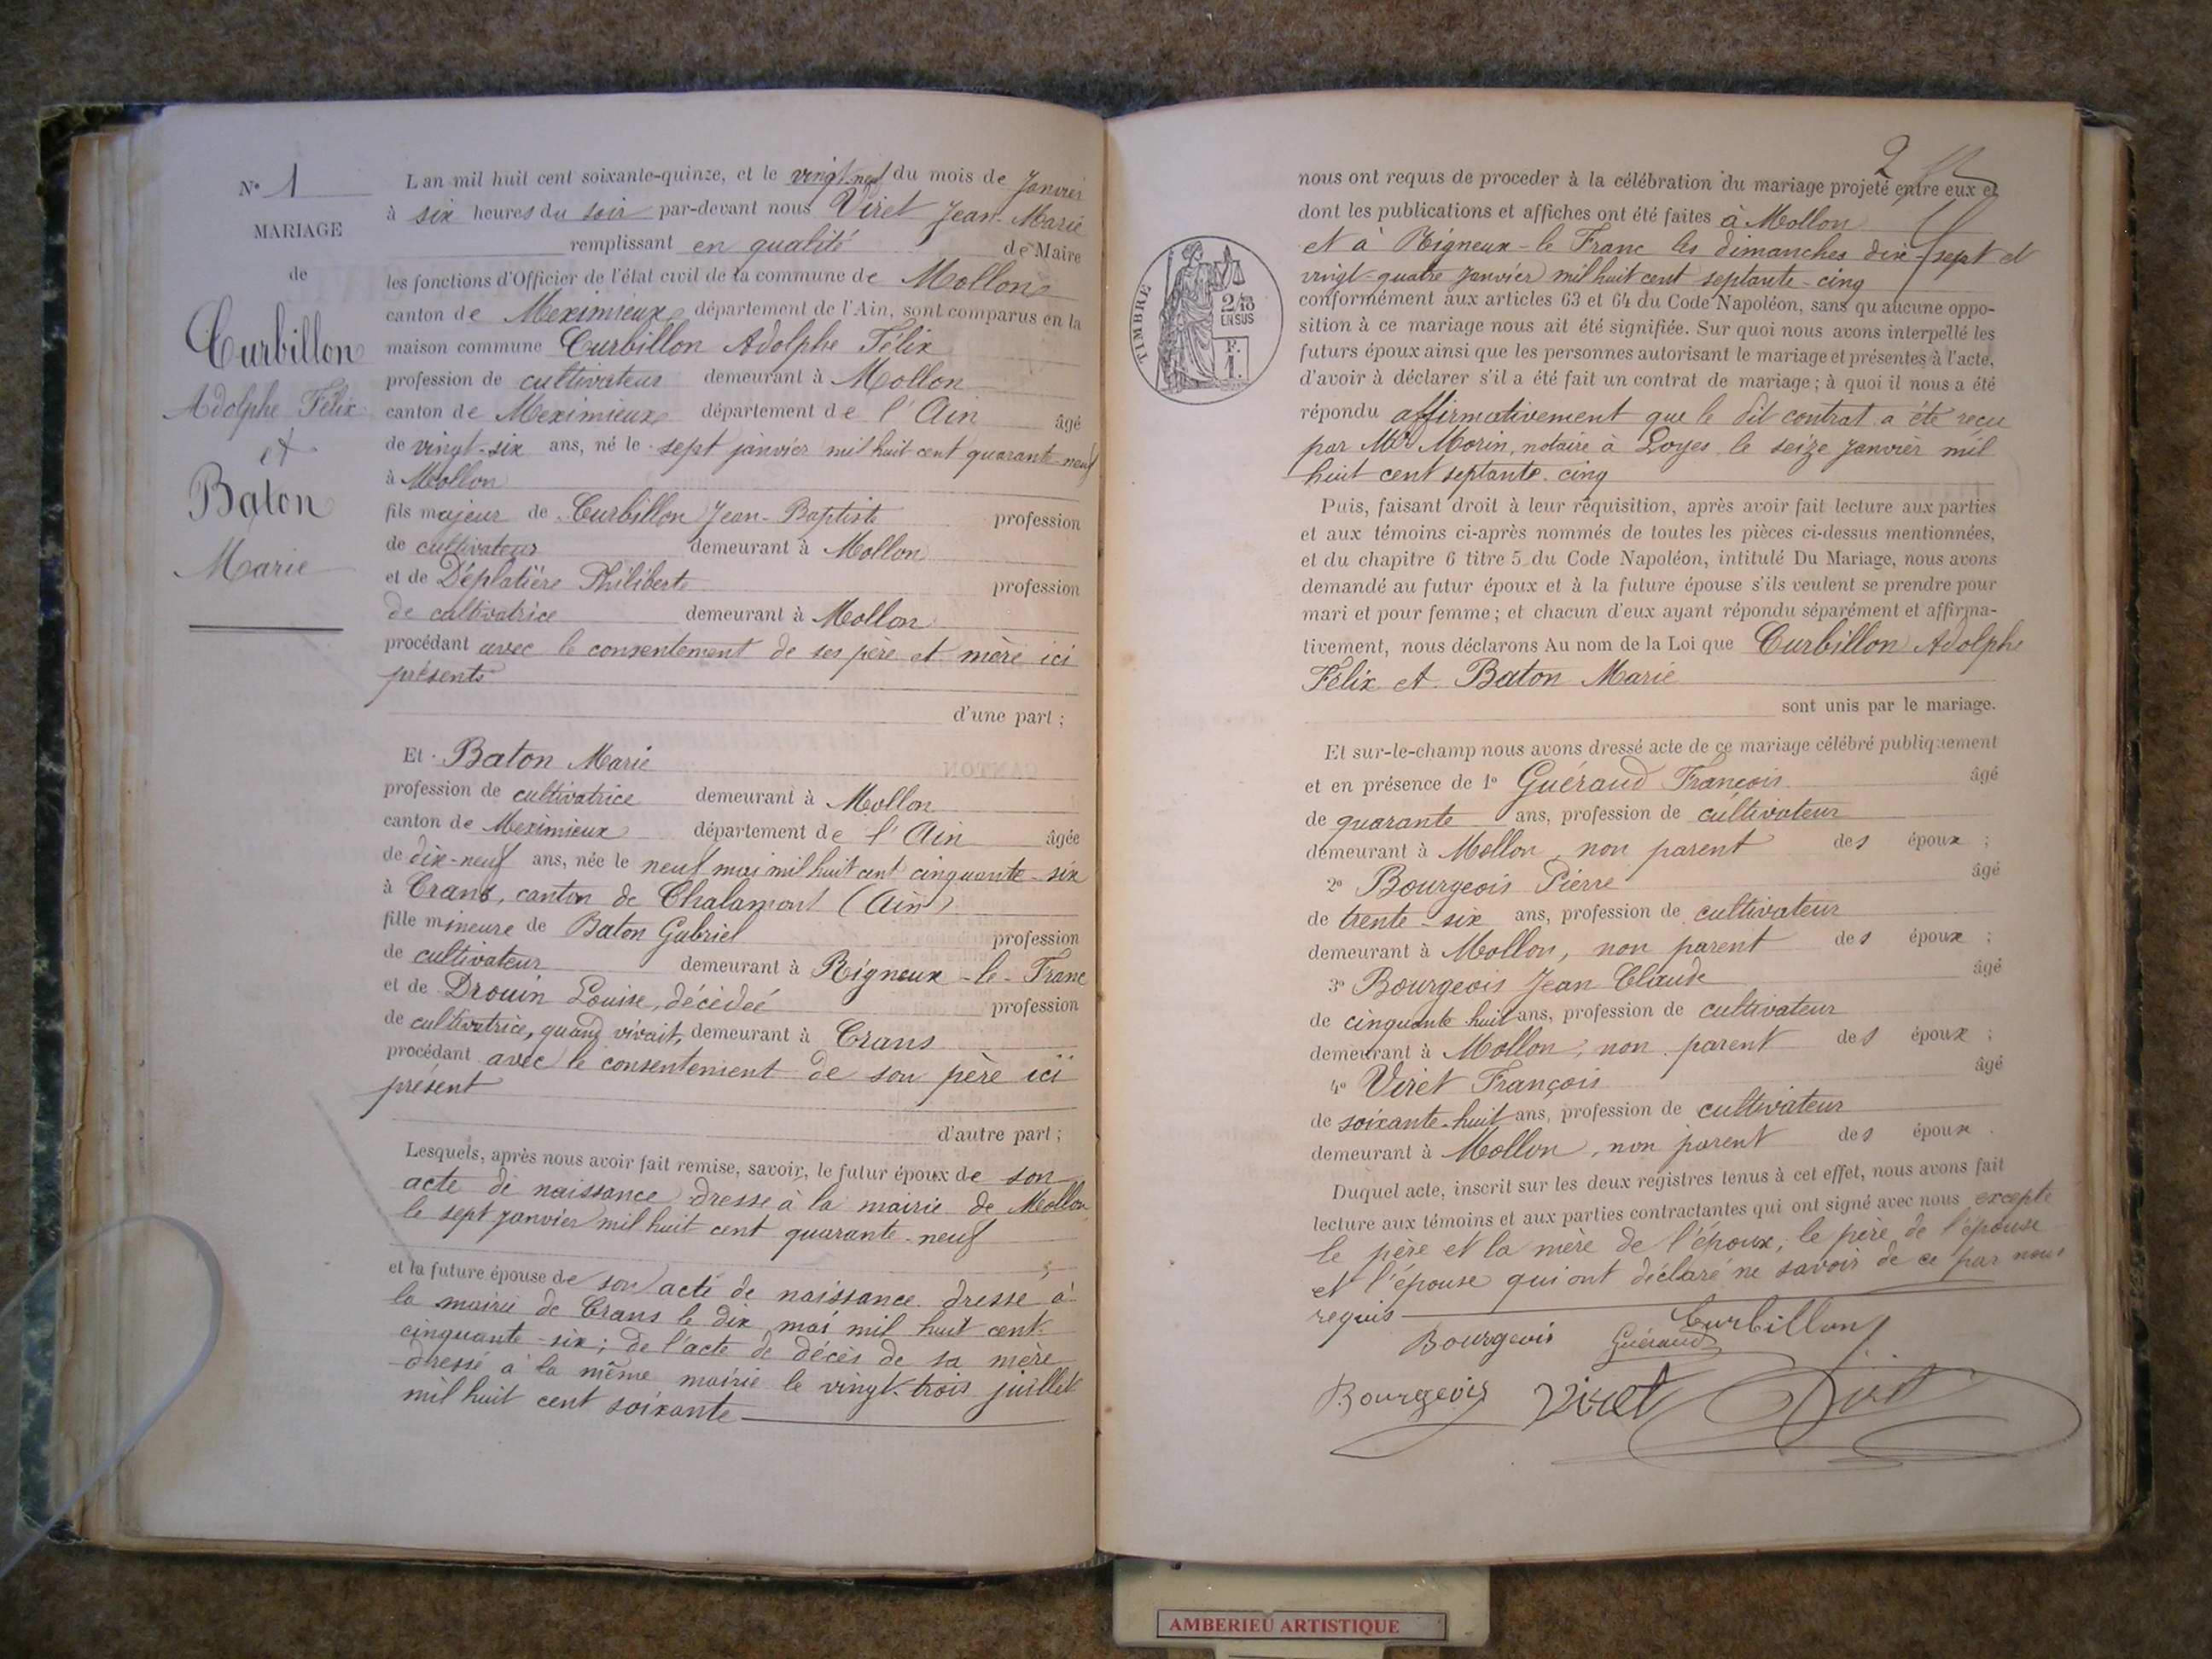 N° 1
MARIAGE
de
Curbillon
Adolphe Félix
et
Baton
Marie
L an mil huit cent soixante-quinze, et le vingt-neuf du mois de Janvier
à six heures du soir par-devant nous Viret Jean-Marie
remplissant en qualité de Maire
les fonctions d'Officier de l'état civil de la commune de Mollon
canton de Meximieux département de l'Ain, sont comparus en la
maison commune Curbillon Adolphe Félix
profession de cultivateur demeurant à Mollon
canton de Meximieux département de l'Ain âgé
de vingt-six ans, né le sept janvier mil huit cent quarante-neuf
à Mollon
fils majeur de Curbillon Jean-Baptiste profession
de cultivateur demeurant à Mollon
et de Déplatière Philiberte profession
de cultivatrice demeurant à Mollon
procédant avec le consentement de ses père et mère ici
présents
d'une part ;
Et Baton Marie
profession de cultivatrice demeurant à Mollon
canton de Meximieux département de l'Ain âgée
de dix-neuf ans, née le neuf mai mil huit cent cinquante-six
à Crans, canton de Chalamont (Ain)
fille mineure de Baton Gabriel profession
de cultivateur demeurant à Rigneux-le-Franc
et de Drouin Louise, décédée profession
de cultivatrice, quand vivait, demeurant à Crans
procédant avec le consentement de son père ici
présent
d'autre part ;
Lesquels, après nous avoir fait remise, savoir, le futur époux de son
acte de naissance dressé à la mairie de Mollon
le sept janvier mil huit cent quarante-neuf
et la future épouse de son acte de naissance dressé à
la mairie de Crans le dix mai mil huit cent
cinquante-six ; de l'acte de décès de sa mère
dressé à la même mairie le vingt-trois juillet
mil huit cent soixante
2
nous ont requis de proceder à la célébration du mariage projeté entre eux et
dont les publications et affiches ont été faites à Mollon
et à Rigneux-le-Franc les dimanches dix-sept et
vingt-quatre janvier mil huit cent septante-cinq
conformément aux articles 63 et 64 du Code Napoléon, sans qu aucune oppo-
sition à ce mariage nous ait été signifiée. Sur quoi nous avons interpellé les
futurs époux ainsi que les personnes autorisant le mariage et présentes à l'acte,
d'avoir à déclarer s'il a été fait un contrat de mariage ; à quoi il nous a été
répondu affirmativement que le dit contrat a été reçu
par Me Morin, notaire à Loyes le seize janvier mil
huit cent septante-cinq
Puis, faisant droit à leur réquisition, après avoir fait lecture aux parties
et aux témoins ci-après nommés de toutes les pièces ci-dessus mentionnées,
et du chapitre 6 titre 5 du Code Napoléon, intitulé Du Mariage, nous avons
demandé au futur époux et à la future épouse s'ils veulent se prendre pour
mari et pour femme ; et chacun d'eux ayant répondu séparément et affirma-
tivement, nous déclarons Au nom de la Loi que Curbillon Adolphe
Félix et Baton Marie
sont unis par le mariage.
Et sur-le-champ nous avons dressé acte de ce mariage célébré publiquement
et en présence de 1° Guéraud François âgé
de quarante ans, profession de cultivateur
demeurant à Mollon, non parent des époux ;
2° Bourgeois Pierre âgé
de trente-six ans, profession de cultivateur
demeurant à Mollon, non parent des époux ;
3° Bourgeois Jean Claude âgé
de cinquante huit ans, profession de cultivateur
demeurant à Mollon, non parent des époux ;
4° Viret François âgé
de soixante-huit ans, profession de cultivateur
demeurant à Mollon, non parent des époux.
Duquel acte, inscrit sur les deux registres tenus à cet effet, nous avons fait
lecture aux témoins et aux parties contractantes qui ont signé avec nous excepté
le père et la mère de l'époux, le père de l'épouse
et l'épouse qui ont déclaré ne savoir de ce par nous
requis
Curbillon
Bourgeois Guéraud
Bourgeois Viret Viret
TIMBRE
2/10
EN SUS
AMBERIEU ARTISTIQUE